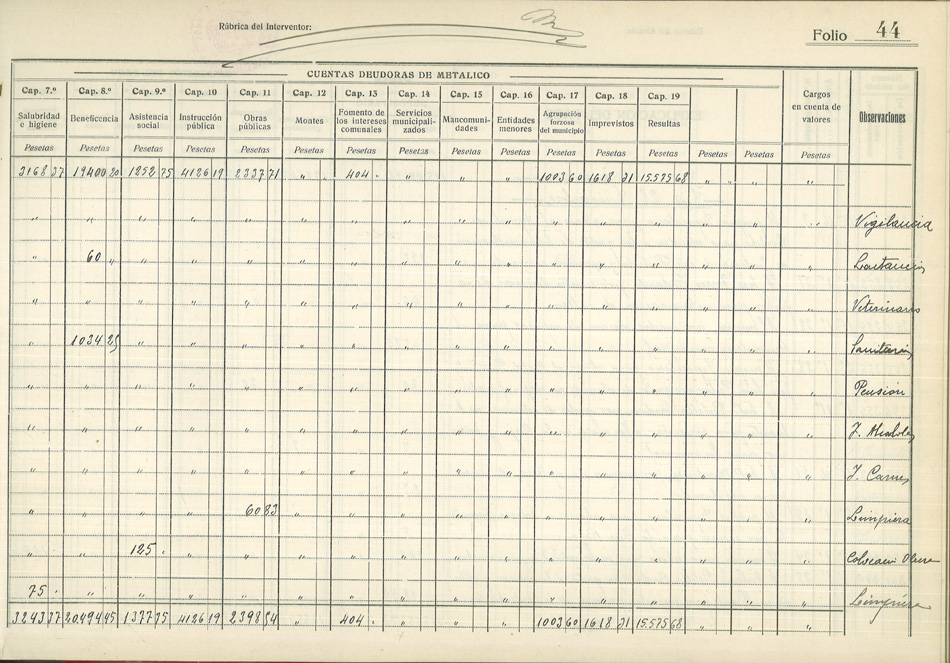 Rúbrica del Interventor:
Folio 44
CUENTAS DEUDORAS DE METALICO
Cap. 7.º Cap. 8.º Cap. 9.º Cap. 10 Cap. 11 Cap. 12 Cap. 13 Cap. 14 Cap. 15 Cap. 16 Cap. 17 Cap. 18 Cap. 19 Cargos en cuenta de valores Observaciones
Salubridad e higiene Beneficencia Asistencia social Instrucción pública Obras públicas Montes Fomento de los intereses comunales Servicios municipalizados Mancomunidades Entidades menores Agrupación forzosa del municipio Imprevistos Resultas
Pesetas Pesetas Pesetas Pesetas Pesetas Pesetas Pesetas Pesetas Pesetas Pesetas Pesetas Pesetas Pesetas Pesetas Pesetas Pesetas
3168 37 19400 20 1252 75 4126 19 2337 71 " " 404 " " " " 1003 60 1618 21 15.575 68 " " " "
" " " " " " " " " " " " " " " " Vigilancia
" 60 " " " " " " " " " " " " " " "
" " " " " " " " " " " " " " " " Veterinario
" 1034 25 " " " " " " " " " " " " " "
" " " " " " " " " " " " " " " " Pensión
" " " " " " " " " " " " " " " " J.
" " " " " " " " " " " " " " " " J. Carnes
" " " " 60 83 " " " " " " " " " " " Limpieza
" " 125 " " " " " " " " " " " " " "
75 " " " " " " " " " " " " " " " " Limpieza
3243 37 20.494 45 1377 75 4126 19 2398 54 " 404 " " " " 1003 60 1618 21 15.575 68 " " "